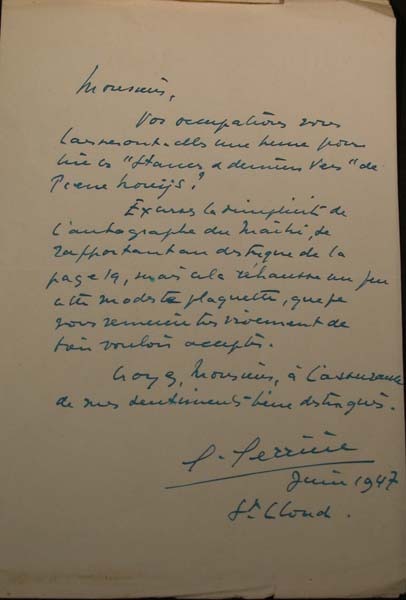 Monsieur,
Vos occupations vous
laisseront-elles une heure pour
lire ces "Stances & derniers Vers" de
Pierre Louÿs?
Excusez la simplicité de
l'autographe du Maître, se
rapportant au distique de la
page 19, mais cela réhausse un peu
cette modeste plaquette, que je
vous remercie très vivement de
bien vouloir accepter.
Croyez, Monsieur, à l'assurance
de mes sentiments bien distingués.
Juin 1947
St Cloud.